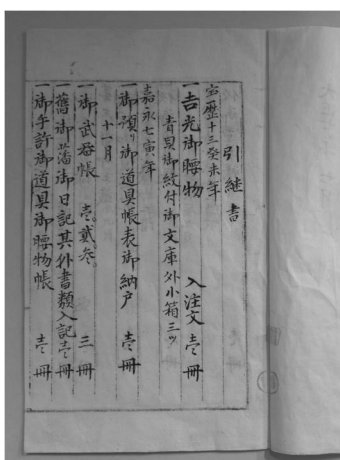 引継書
宝歴十三癸未年
一吉光御腰物 入注文 壱冊
青貝御紋付御文庫外小箱三ツ
嘉永七寅年
一御預り御道具帳表御納戸 壱冊
十一月
一御武器帳 壱。貳。叁。 三冊
一舊御藩御日記其外書類入記 壱冊
一御手許御道具御腰物帳 壱冊